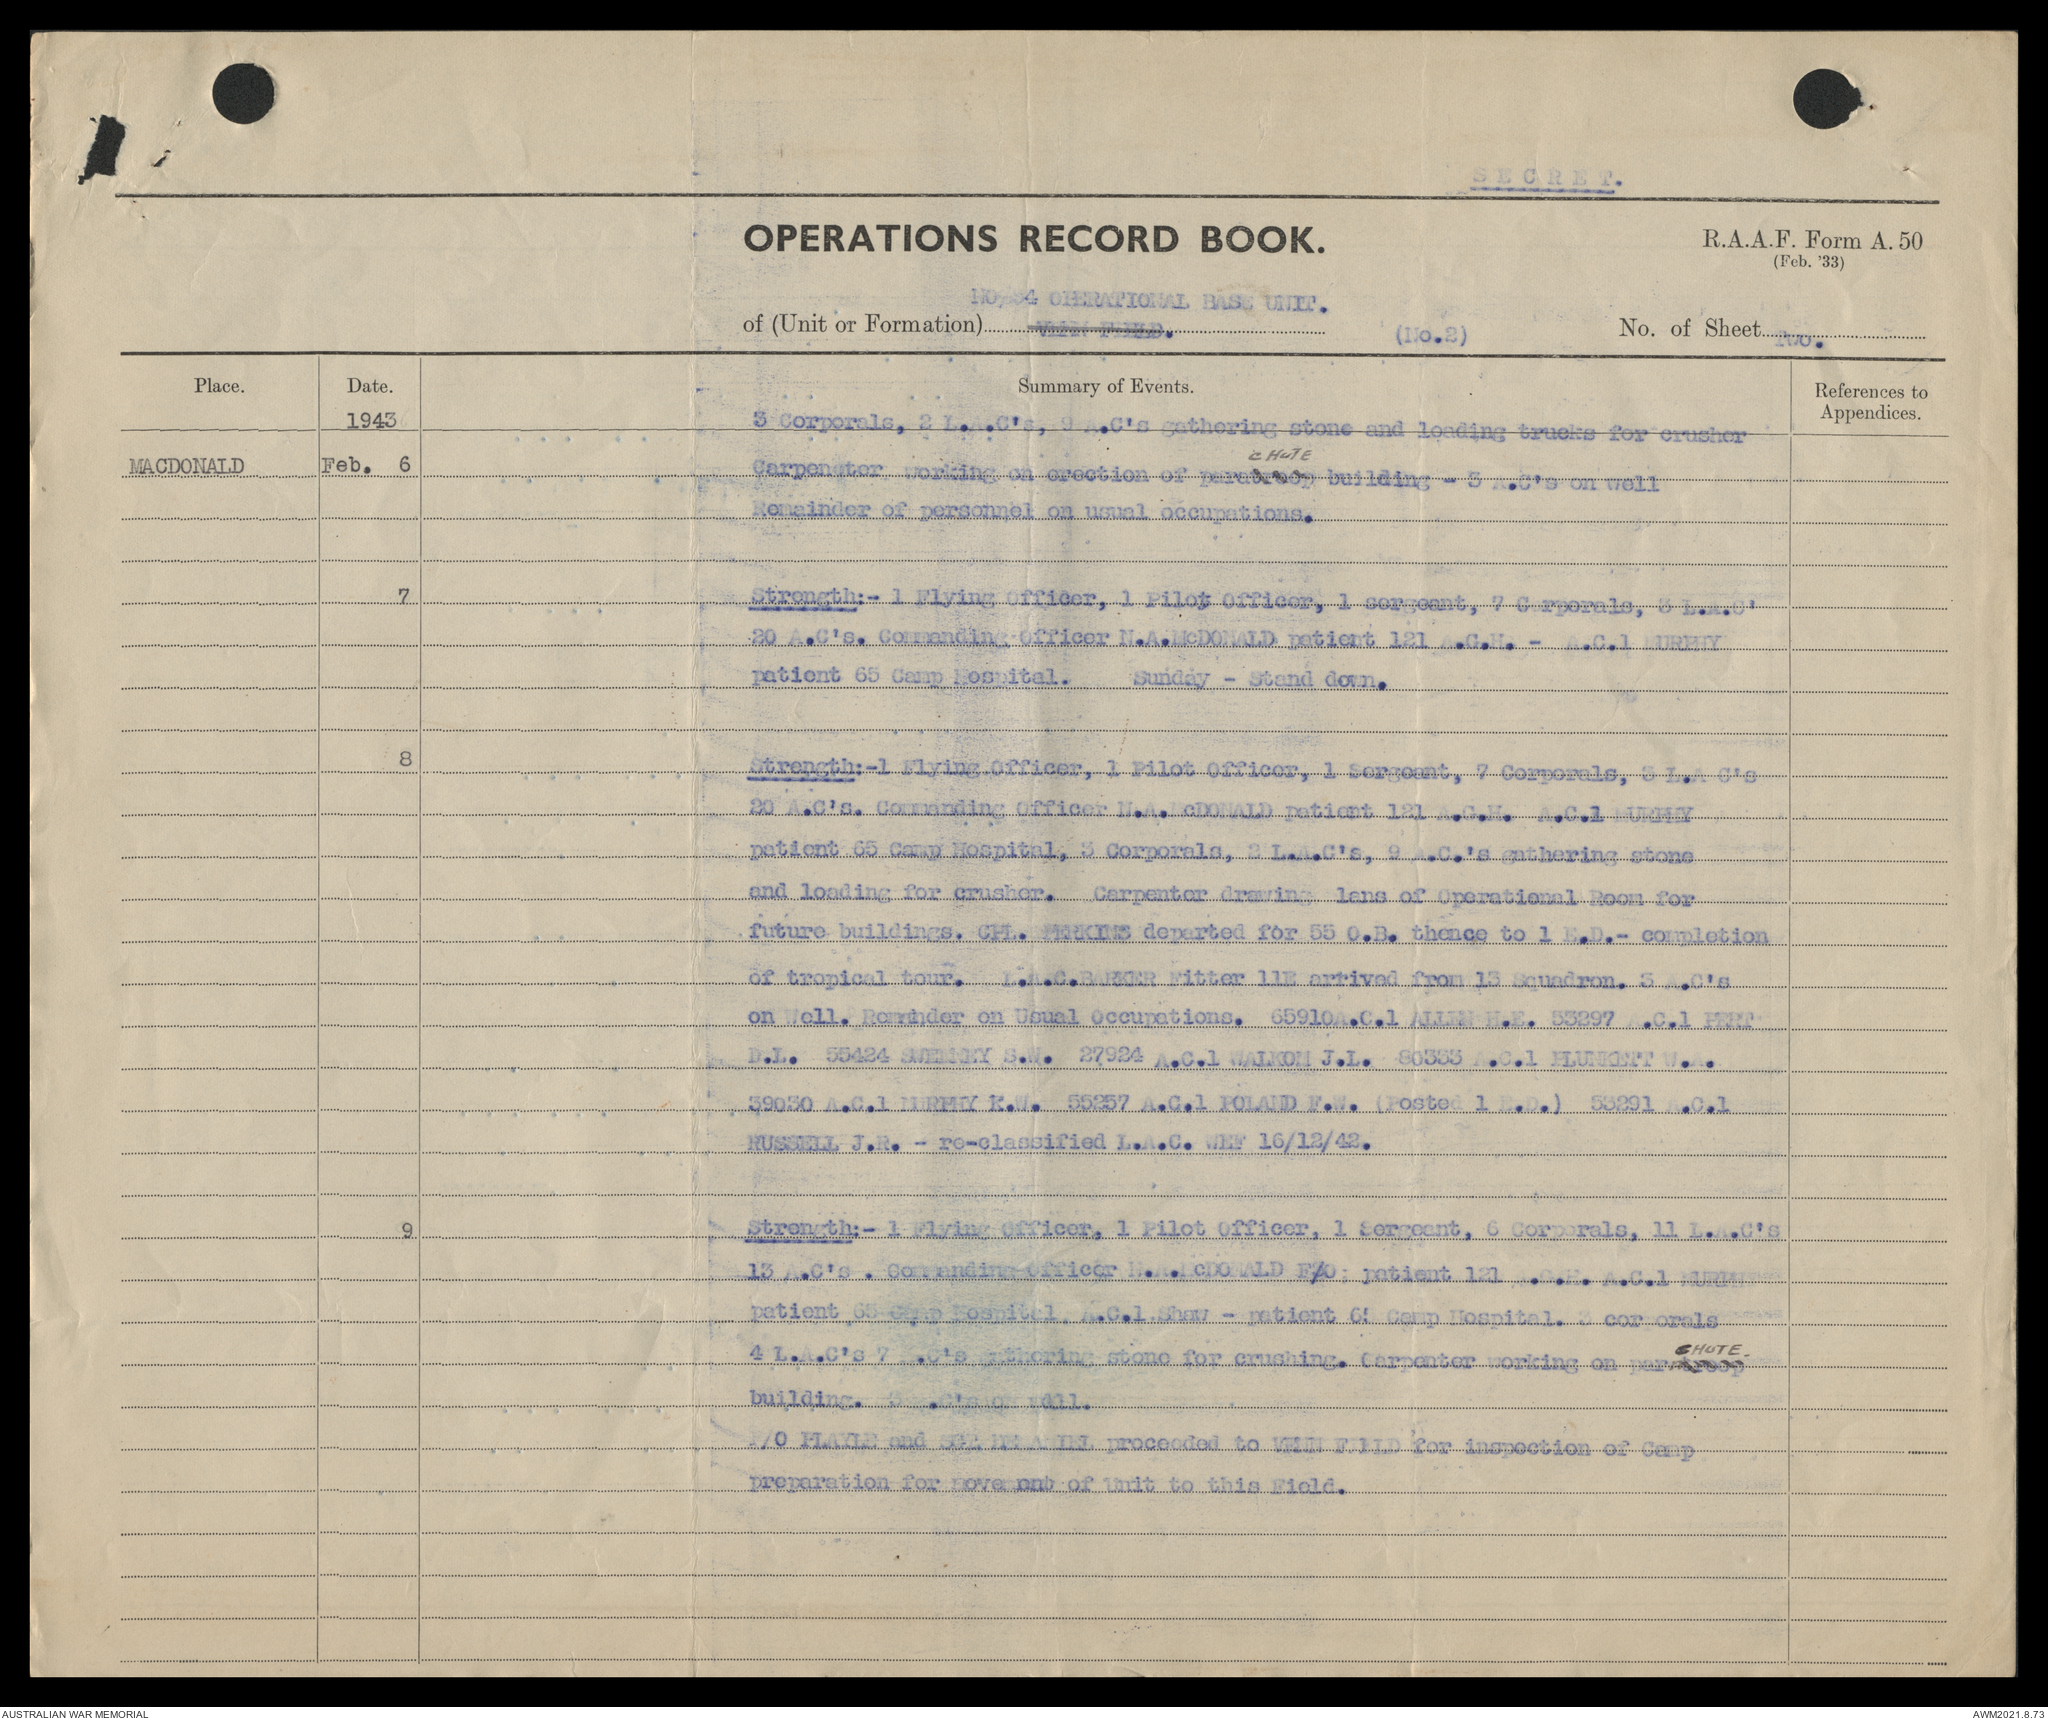 SECRET.
OPERATIONS RECORD BOOK.
R.A.A.F. Form A. 50
(Feb. '33)
NO. 54 OPERATIONAL BASE UNIT.
of (Unit or Formation) VENN FIELD. (No.2) No. of Sheet Two.
Place. Date. Summary of Events. References to Appendices.
1943 3 Corporals, 2 L.A.C's, 9 A.C's gathering stone and loading trucks for crusher
MACDONALD Feb. 6 Carpenster working on erection of paratroop CHUTE building - 3 A.C's on well
Remainder of personnel on usual occupations.
7 Strength:- 1 Flying Officer, 1 Pilot Officer, 1 sergeant, 7 Corporals, 3 L.A.C'
20 A.C's. Commanding Officer N.A.McDONALD patient 121 A.G.H. - A.C.1 MURPHY
patient 65 Camp Hospital. Sunday - Stand down.
8 Strength:-1 Flying Officer, 1 Pilot Officer, 1 Sergeant, 7 Corporals, 3 L.A C's
20 A.C's. Commanding Officer N.A. McDONALD patient 121 A.G.H. A.C.1 MURPHY
patient 65 Camp Hospital, 3 Corporals, 2 L.A.C's, 9 A.C.'s gathering stone
and loading for crusher. Carpenter drawing lans of Operational Room for
future buildings. CPL. PERKINS departed for 55 O.B. thence to 1 E.D.- completion
of tropical tour. L.A.C.BARKER Fitter 11E arrived from 13 Squadron. 3 A.C's
on Well. Remainder on Usual Occupations. 65910A.C.1 ALLEN H.E. 53297 A.C.1 PERT
D.L. 55424 SWEENEY S.W. 27924 A.C.1 WALKOM J.L. 80333 A.C.1 PLUNKETT W.A.
39030 A.C.1 MURPHY K.W. 55257 A.C.1 POLAND F.W. (Posted 1 E.D.) 53291 A.C.1
RUSSELL J.R. - re-classified L.A.C. WEF 16/12/42.
9 Strength:- 1 Flying Officer, 1 Pilot Officer, 1 Sergeant, 6 Corporals, 11 L.A.C's
13 A.C's . Commanding Officer N.A.McDONALD F/O; patient 121 A.G.H. A.C.1 MURPHY
patient 65 Camp Hospital. A.C.1 Shaw - patient 65 Camp Hospital. 3 cor orals
4 L.A.C's 7 A.C's gathering stone for crushing. Carpenter working on paratroop CHUTE.
building. 3 A.C's on well.
P/O PLAYLE and SGT proceeded to VENN FIELD for inspection of Camp
preparation for movement of Unit to this Field.
AUSTRALIAN WAR MEMORIAL
AWM2021.8.73